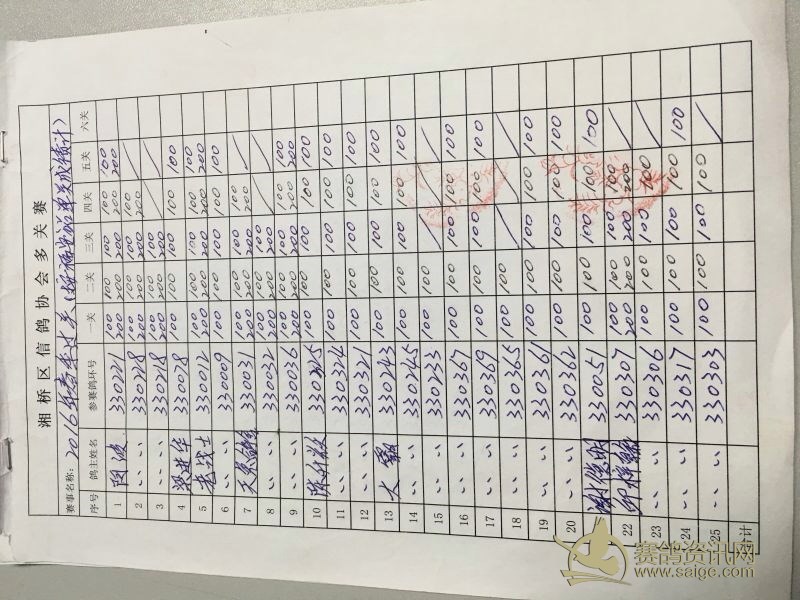 湘桥区信鸽协会多关赛
赛事名称：2016年春季过关（单关成绩计）
序号 鸽主姓名 参赛鸽环号 一关 二关 三关 四关 五关 六关
1 闵波 330221 100 200 100 200 100 200 100 200 100 200
2 〃 330228 100 200 100 200 100 200 100 200
3 〃 330218 100 200 100 200 100 200
4 330078 100 100 100 100 100
5 老战士 330012 100 200 100 200 100 200 100 200 100 200
6 〃 330009 100 100 100 100 100
7 330031 100 200 100 200 100 200 100 200
8 〃 330032 100 200 100 200 100 200
9 〃 330036 100 200 100 200 100 200 100 200 100 200
10 330325 100 100 100 100 100
11 〃 330324 100 100 100 100 100
12 〃 330321 100 100 100 100 100
13 330243 100 100 100 100 100
14 〃 330245 100 100 100 100 100
15 〃 330233 100 100
16 〃 330367 100 100 100 100 100
17 〃 330369 100 100 100 100 100
18 〃 330365 100 100
19 〃 330361 100 100 100 100 100
20 〃 330362 100 100 100 100 100
谢俊明 330051 100 100 100 100 100
22 330307 100 200 100 200 100 200 100 200
23 〃 330306 100 100 100 100
24 〃 330317 100 100 100 100 100
25 〃 330303 100 100 100 100
合计
赛鸽资讯网
www.saige.com